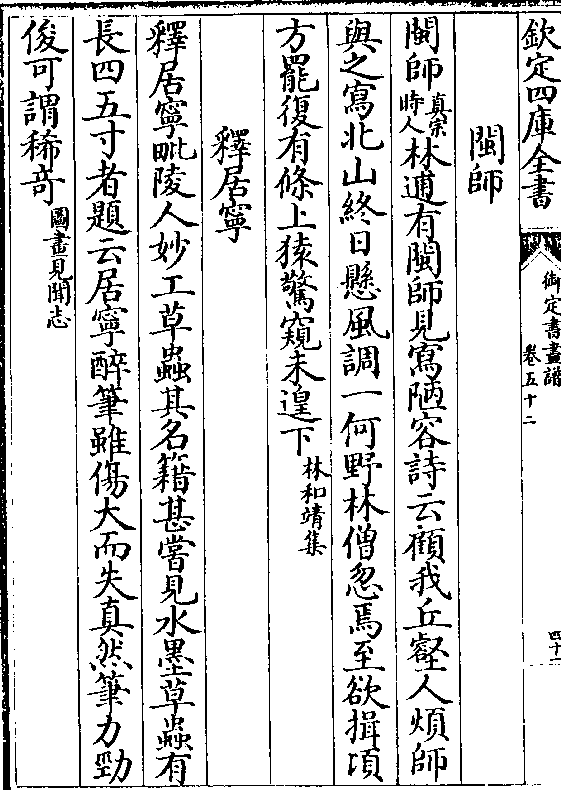 欽定四庫全書
御定書畫譜
卷五十二
四十一
閩師
閩師真宗時人林逋有閩師見寫陋容詩云顧我丘壑人煩師
與之寫北山終日懸風調一何野林僧忽焉至欲揖項
方罷復有條上猿驚窺未遑下林和靖集
釋居寧
釋居寧毗陵人妙工草蟲其名籍甚嘗見水墨草蟲有
長四五寸者題云居寧醉筆雖傷大而失真然筆力勁
俊可謂稀奇圖畫見聞志